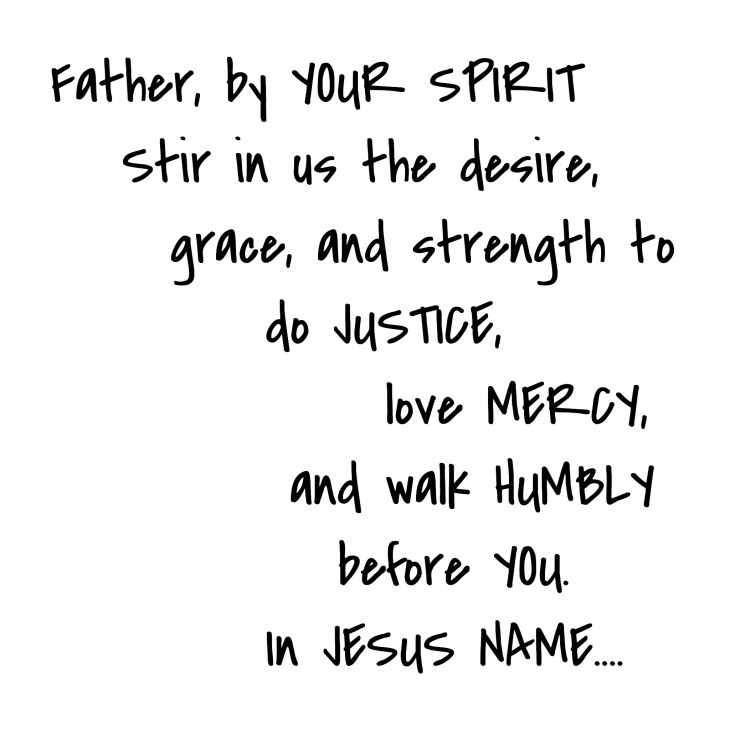 Father, by YOUR SPIRIT
Stir in us the desire,
grace, and strength to
do JUSTICE,
love MERCY,
and walk HUMBLY
before YOU.
In JESUS NAME....